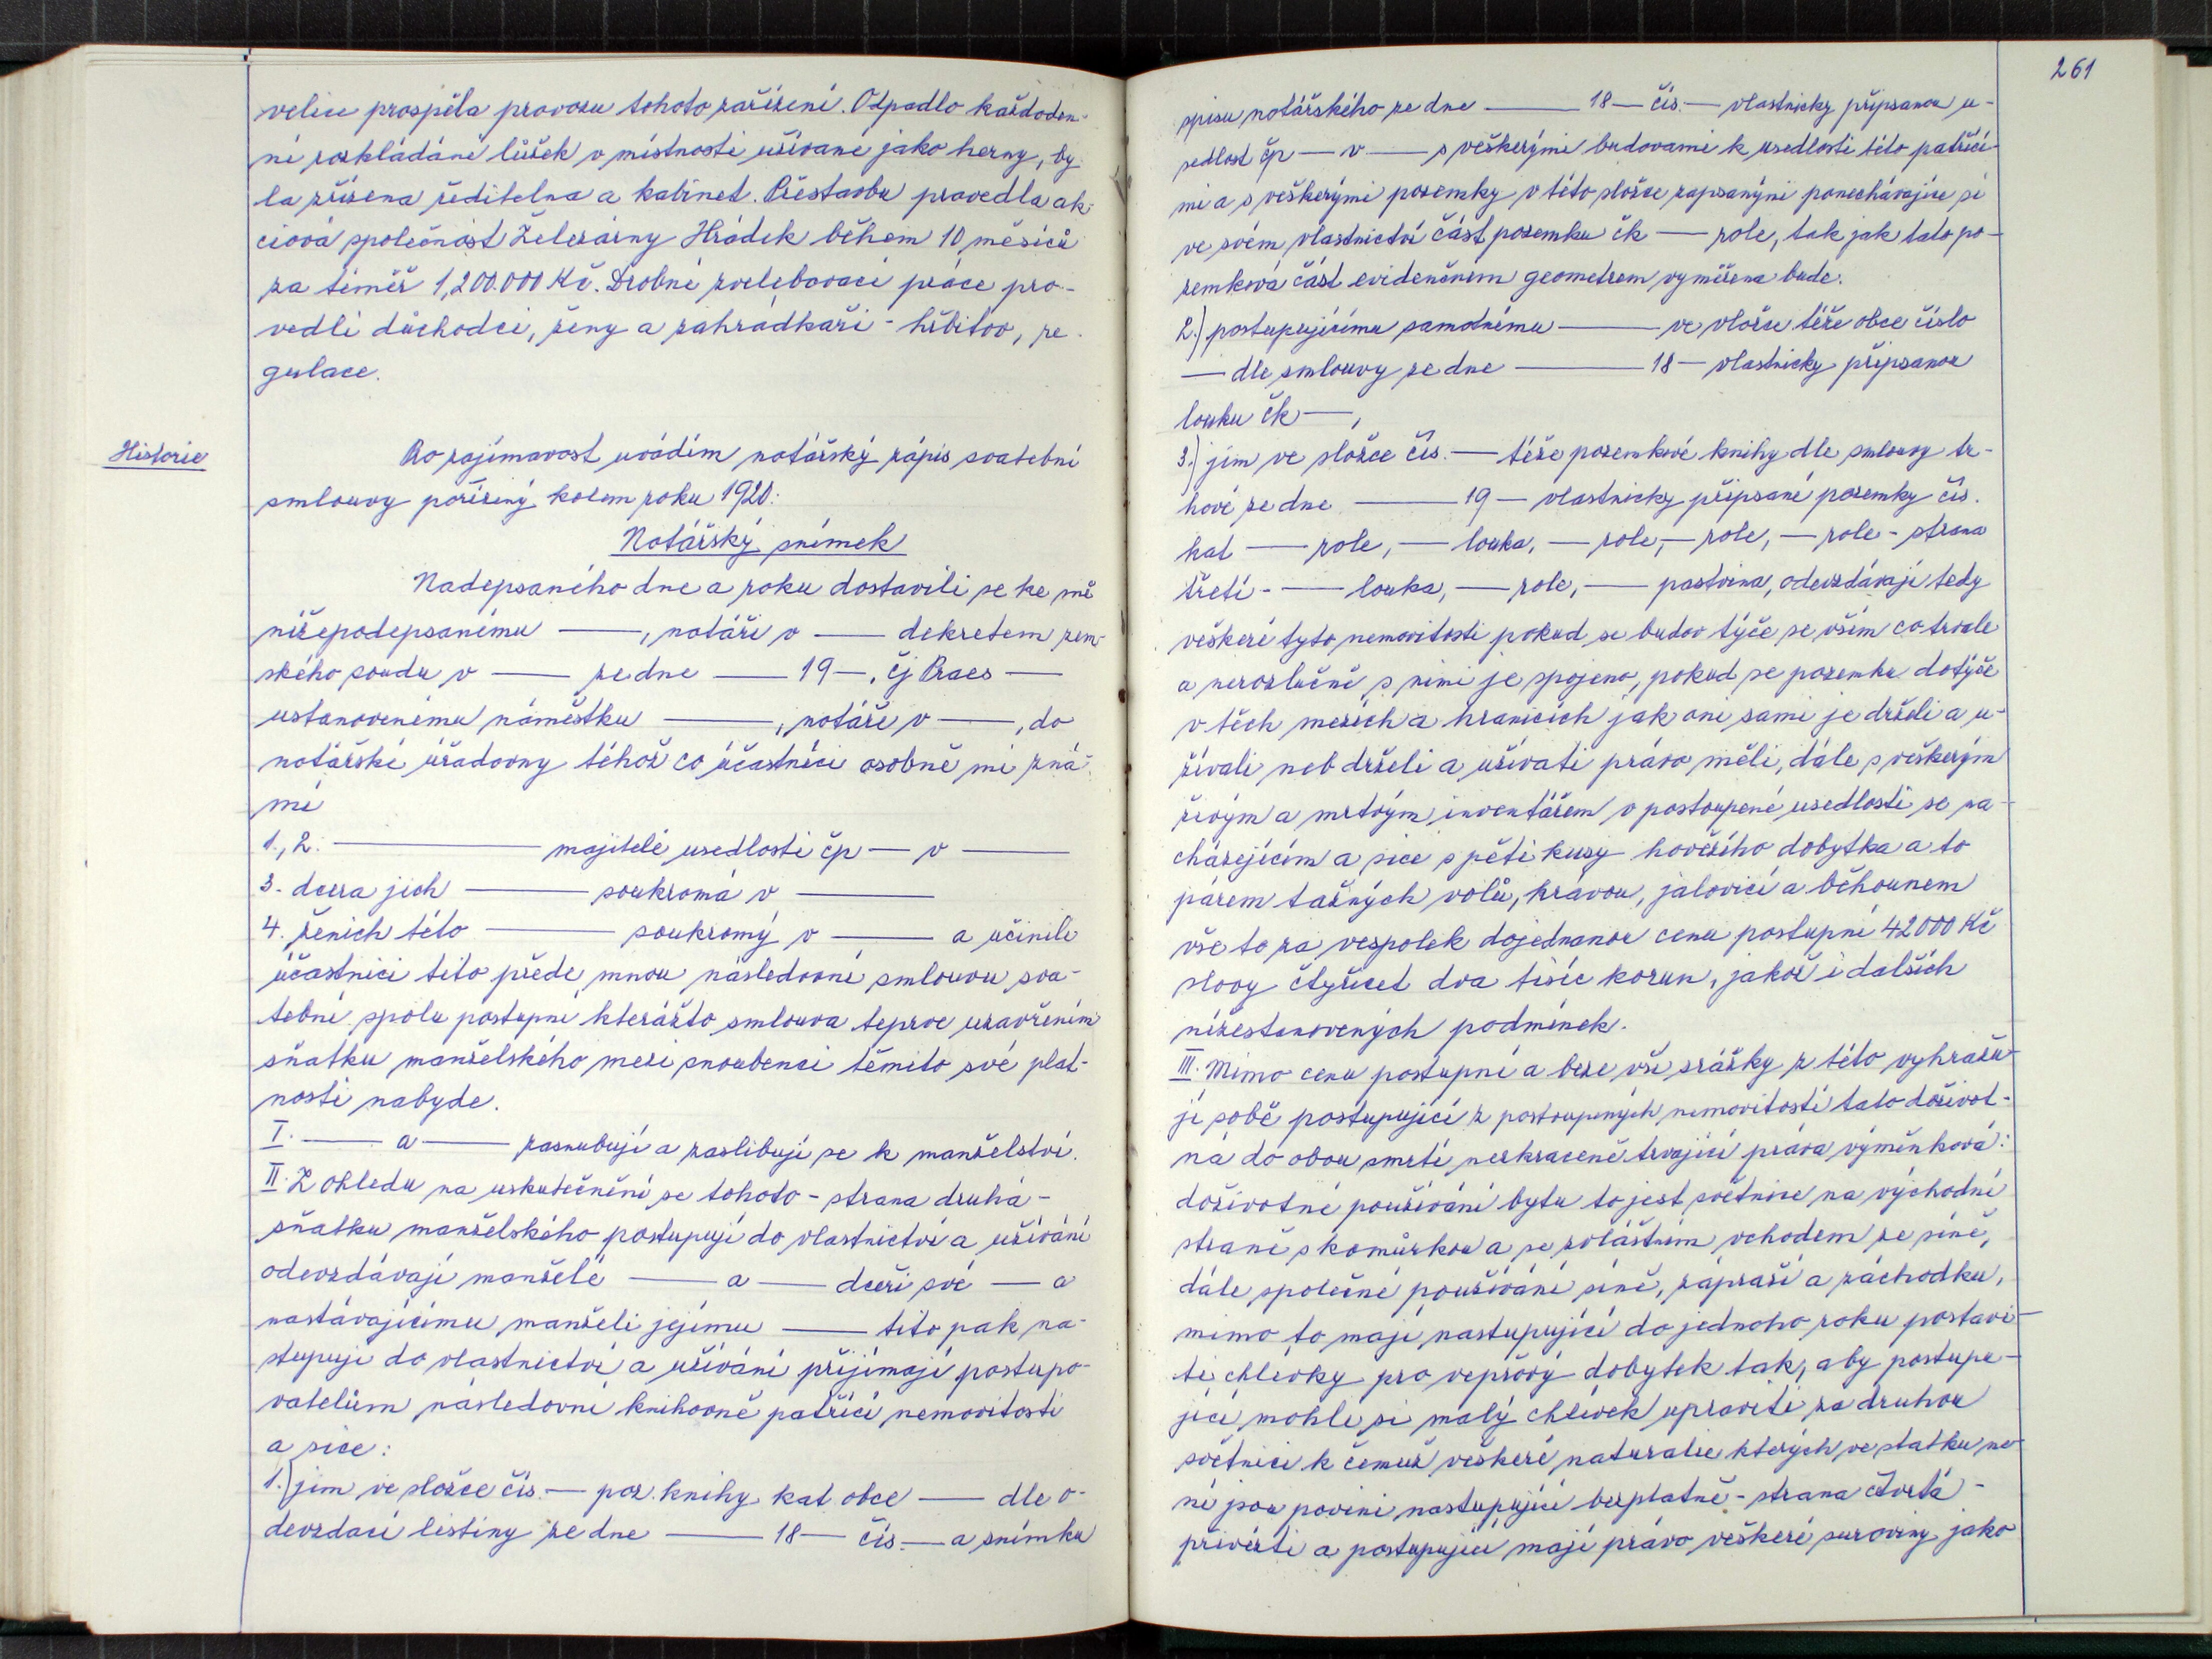 velice prospěla provozu tohoto zařízení. Odpadlo každoden-
ní rozkládání lůžek v místnosti užívané jako herny, by-
la zřízena ředitelna a kabinet. Přestavbu provedla ak-
ciová společnost Železárny Hrádek během 10 měsíců
za téměř 1,200.000 Kč. Drobné zvelebovací práce pro-
vedli důchodci, ženy a zahrádkáři - hřbitov, re-
gulace.
Historie
Pro zajímavost uvádím notářský zápis svatební
smlouvy pořízený kolem roku 1920:
Notářský snímek
Nadepsaného dne a roku dostavili se ke mě
nížepodepsanému —, notáři v — dekretem zem-
ského soudu v — ze dne — 19 —, čj Praes —
ustanovenému náměstku —, notáře v —, do
notářské úřadovny téhož co účastníci osobně mi zná-
mí
1., 2. — majitelé usedlosti čp — v —
3. dcera jich — soukromá v —
4. ženich této — soukromý v — a učinili
účastníci tito přede mnou následovní smlouvu sva-
tební spolu postupní kterážto smlouva teprve uzavřením
sňatku manželského mezi snoubenci těmito své plat-
nosti nabyde.
I. — a — zasnubují a zaslibují se k manželství.
II. Z ohledu na uskutečnění se tohoto - strana druhá -
sňatku manželského postupují do vlastnictví a užívání
odevzdávají manželé — a — dceři své — a
nastávajícímu manželi jejímu — tito pak na-
stupují do vlastnictví a užívání přijímají postupo-
vatelům následovní knihovně patřící nemovitosti
a sice:
1.) jim ve složce čís. — poz. knihy kat obce — dle o-
devzdací listiny ze dne — 18 — čís. — a snímku
261
spisu notářského ze dne — 18 — čís. — vlastnicky připsanou u-
sedlost čp — v — s veškerými budovami k usedlosti této patřící-
mi a s veškerými pozemky v této složce zapsanými ponechávajíce si
ve svém vlastnictví část pozemku čk — role, tak jak tato po-
zemková část evidenčním geometrem vyměřena bude.
2.) postupujícímu samotnému — ve vložce téže obce číslo
— dle smlouvy ze dne — 18 — vlastnicky připsanou
louku čk —,
3.) jim ve složce čís. — téže pozemkové knihy dle smlouvy tr-
hové ze dne — 19 — vlastnicky připsané pozemky čís.
kat — role, — louka, — role, — role, — role - strana
třetí - — louka, — role, — pastvina, odevzdávají tedy
veškeré tyto nemovitosti pokud se budov týče se vším co trvale
a nerozlučně s nimi je spojeno, pokud se pozemku dotýče
v těch mezích a hranicích jak oni sami je drželi a u-
žívali neb drželi a užívati právo měli, dále s veškerým
živým a mrtvým inventářem v postoupené usedlosti se na-
cházejícím a sice s pěti kusy hovězího dobytka a to
párem tažných volů, krávou, jalovicí a běhounem
vše to za vespolek dojednanou cenu postupní 42000 Kč
slovy čtyřicet dva tisíc korun, jakož i dalších
nížestanovených podmínek.
III. Mimo cenu postupní a beze vší srážky z této vyhražu-
jí sobě postupující z postoupených nemovitostí tato doživot-
ná do obou smrti nezkráceně trvající práva výměnková:
doživotné používání bytu to jest světnice na východní
straně s komůrkou a se zvláštním vchodem ze síně,
dále společné používání síně, zápraží a záchodku,
mimo to mají nastupující do jednoho roku postavi-
ti chlévky pro vepřový dobytek tak, aby postupu-
jící mohli si malý chlívek upraviti za druhou
světnici k čemuž veškeré naturalie kterých ve statku ne-
ní jsou povini nastupující bezplatně - strana čtvrtá -
přivézti a postupující mají právo veškeré suroviny jako